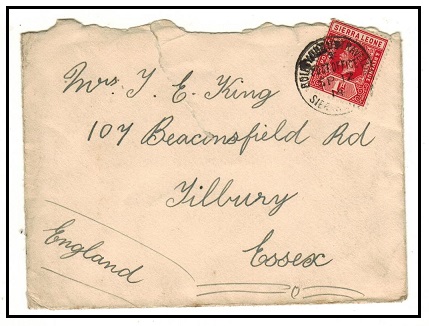 SIERRA LEONE
Mrs. J. E. King
107 Beaconsfield Rd
Tilbury
Essex
England